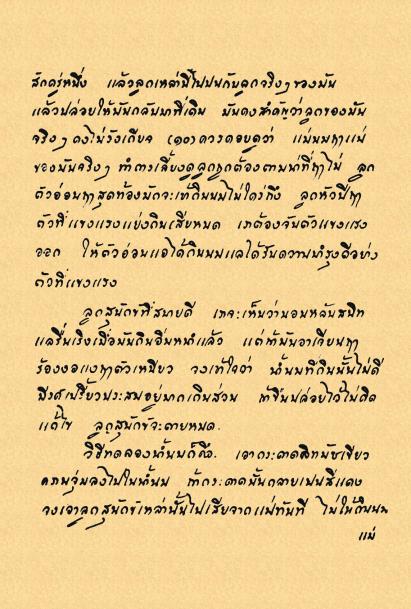 สักครู่หนึ่ง แล้วลูกเหล่านี้ไปปนกับลูกจริงๆ ของมัน
แล้วปล่อยให้มันกลับมาที่เดิม มันคงสำคัญว่าลูกของมัน
จริงๆ คงไม่รังเกียจ (๑๐) ควรคอยดูว่า แม่นมหาแม่
ของมันจริงๆ ทำการเลี้ยงดูลูกถูกต้องตามหน้าที่หาไม่ ลูก
ตัวอ่อนหาสุดท้องมักจะเข้ากินนมไม่ใคร่ถึง ลูกหัวปีหา
ตัวที่แขงแรงแย่งกินเสียหมด เราต้องจับตัวแขงแรง
ออก ให้ตัวอ่อนแอได้กินนมแลได้รับความบำรุงดีอย่าง
ตัวที่แขงแรง
ลูกสุนักข์ที่สบายดี เราจะเห็นว่านอนหลับสนิท
แลรื่นเริงเมื่อมันกินอิ่มหนำแล้ว แต่ถ้ามันอาเจียนหา
ร้องงอแงหาตัวเหี่ยว จงเข้าใจว่า น้ำนมที่กินนั้นไม่ดี
มีรศเปรี้ยวประสมอยู่มากเกินส่วน ถ้าขืนปล่อยไว้ไม่คิด
แก้ไข ลูกสุนักข์จะตายหมด.
วิธีทดลองน้ำนมก็คือ. เอากระดาดลิทมัซเขียว
จุ่มลงไปในน้ำนม ถ้ากระดาดนั้นกลายเปนสีแดง
จงเอาลูกสุนักข์เหล่านั้นไปเสียจากแม่ทันที ไม่ให้กินนม
แม่